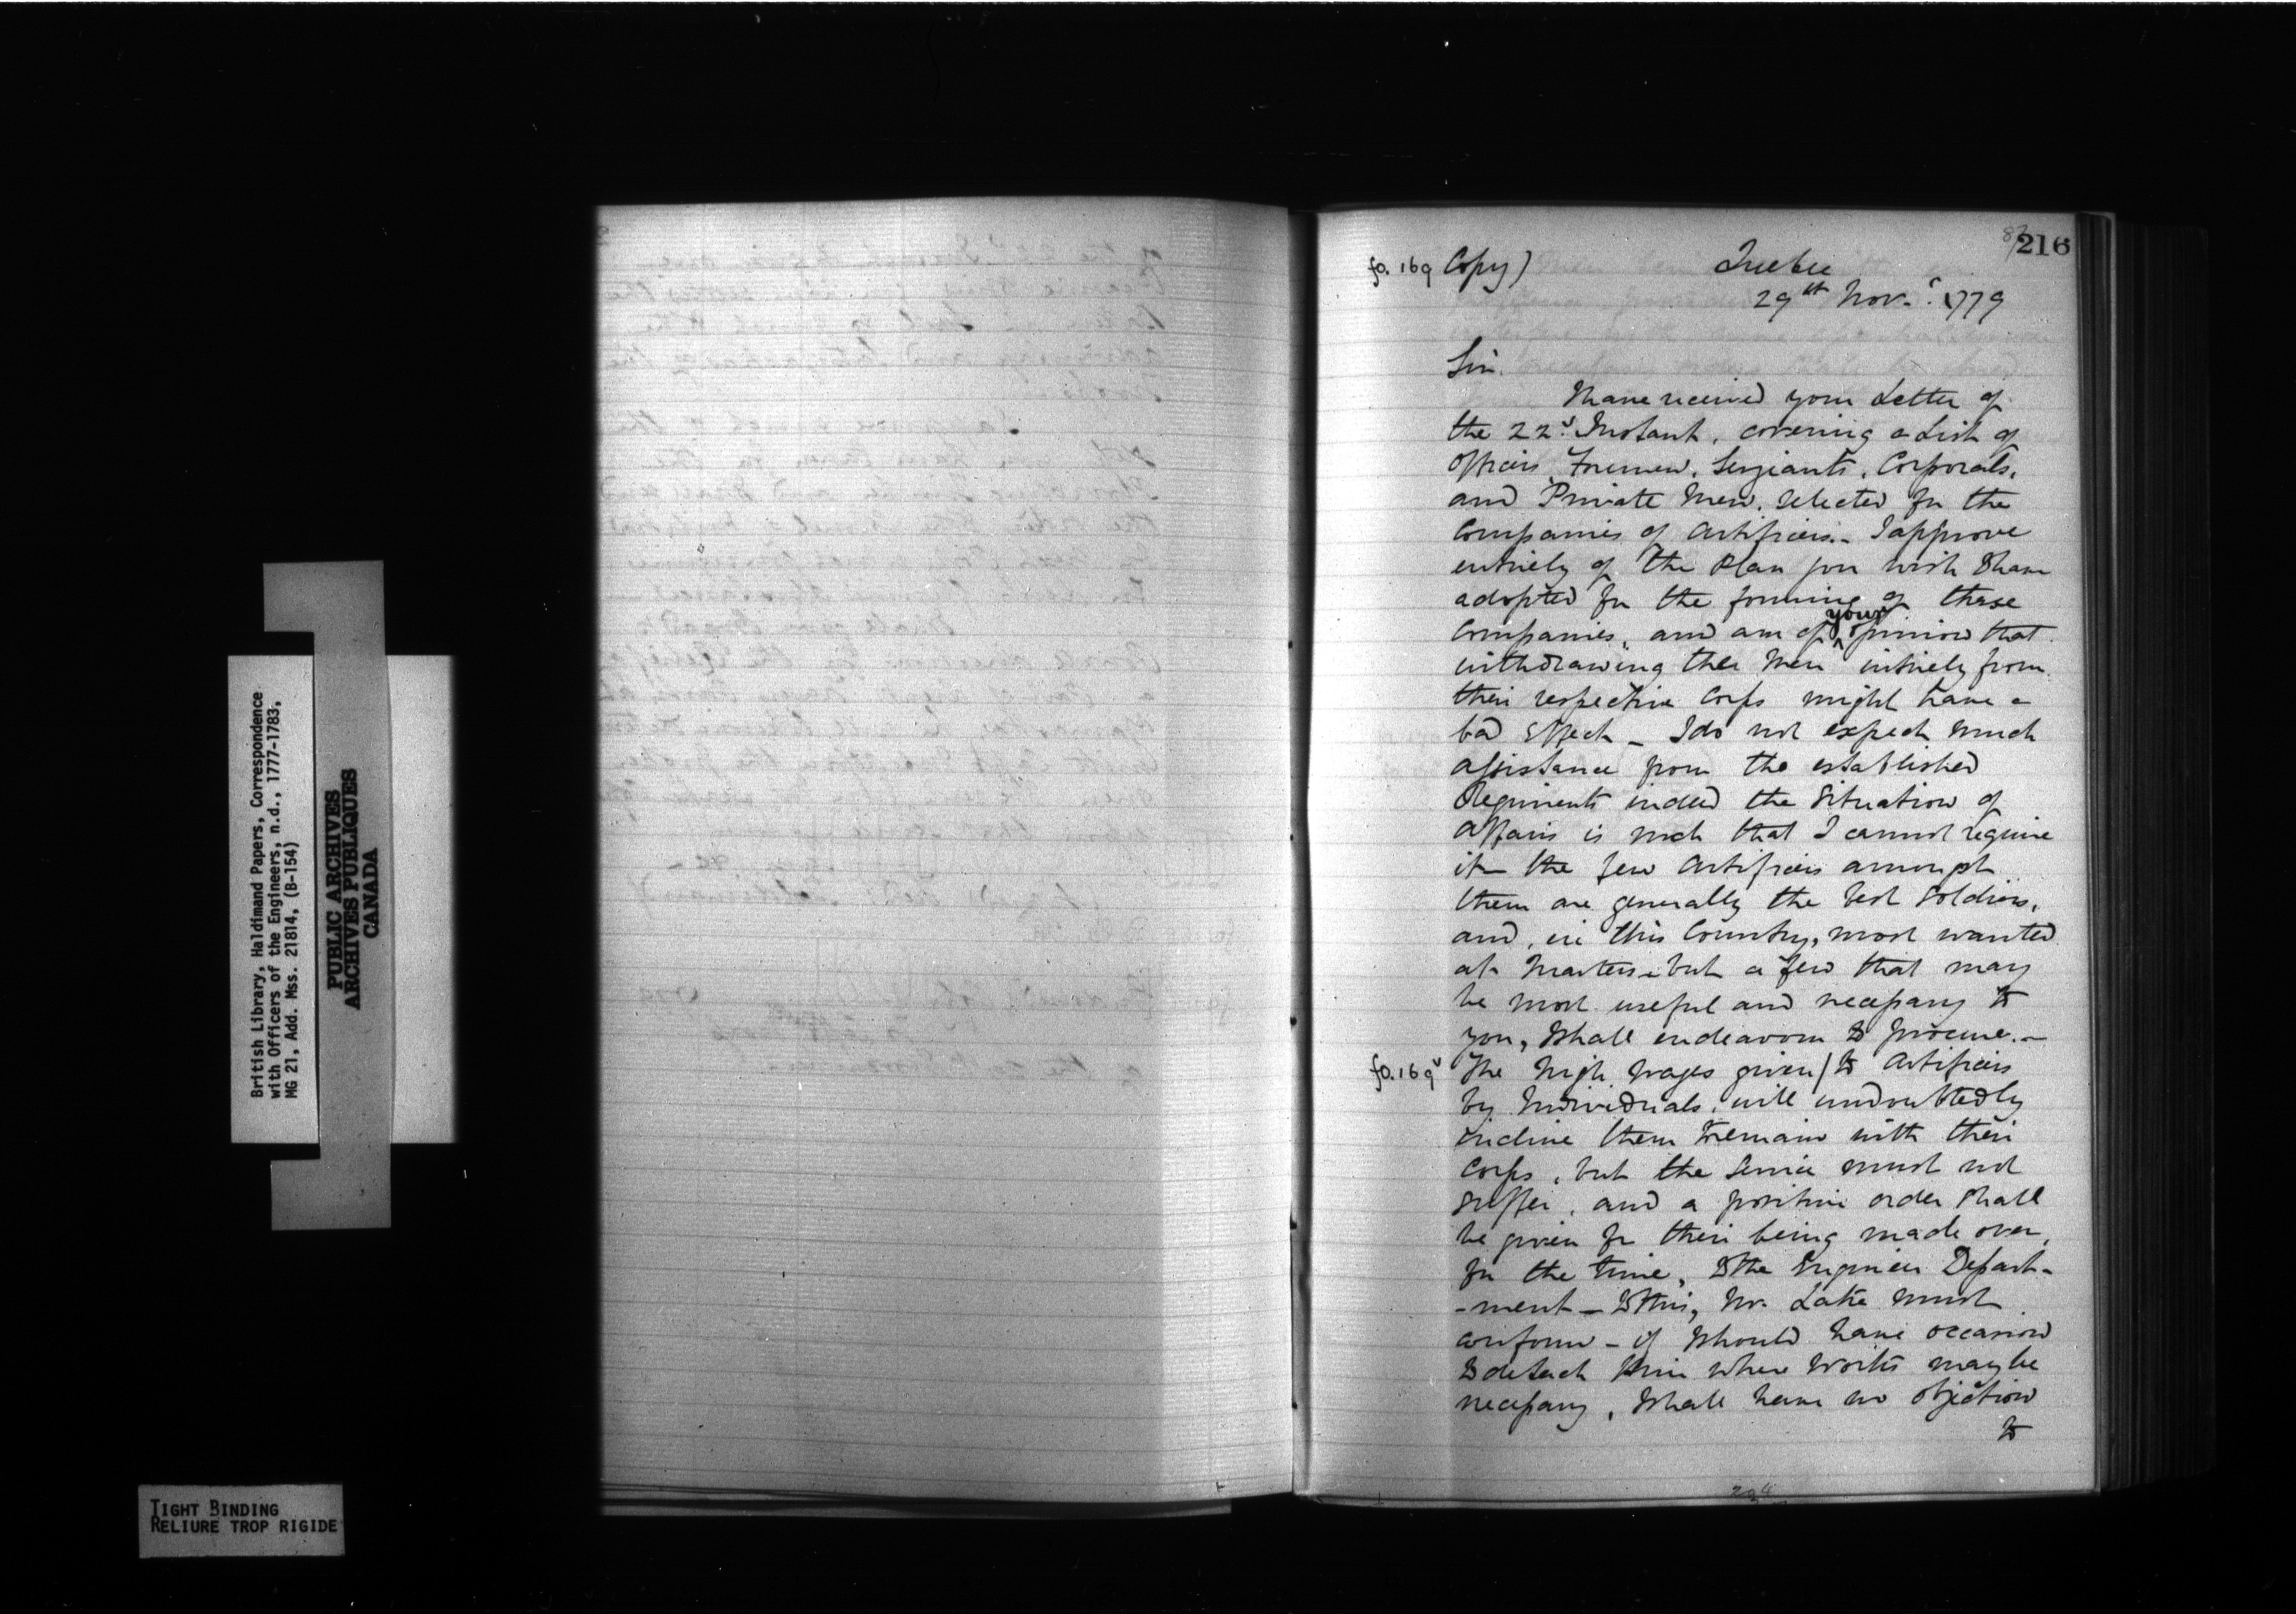 216
fo. 169 Copy) Quebec
29th Novr. 1779
Sir.
I have received your Letter of
the 22d. Instant, covering a List of
Officers, Foremen, Serjeants, Corporals,
and Private Men, selected for the
Companies of Artificers.- I approve
entirely of the Plan you wish to have
adopted for the forming of these
Companies, and am of your opinion that
withdrawing the Men intirely from
their respective Corps might have a
bad Effect - I do not expect much
assistance from the established
Regiments indeed the Situation of
Affairs is such that I cannot require
it - the few Artificers amongst
them are generally the best Soldiers,
and, in this Country, most wanted
at - but a few that may
be most useful and necessary to
you, I shall endeavour to procure.-
fo. 169v The high Wages given / to Artificers
by Individuals, will undoubtedly
incline them to remain with their
Corps, but the Service must not
suffer, and a positive order shall
be given for their being made over,
for the time, to the Engineer Depart-
-ment - to this, Mr. Lake must
conform - if I should have occasion
to detach him where Works may be
necessary, I shall have no objection
to
British Library, Haldimand Papers, Correspondence
with Officers of the Engineers, n.d., 1777-1783,
MG 21, Add. Mss. 21814, (B-154)
PUBLIC ARCHIVES
ARCHIVES PUBLIQUES
CANADA
TIGHT BINDING
RELIURE TROP RIGIDE